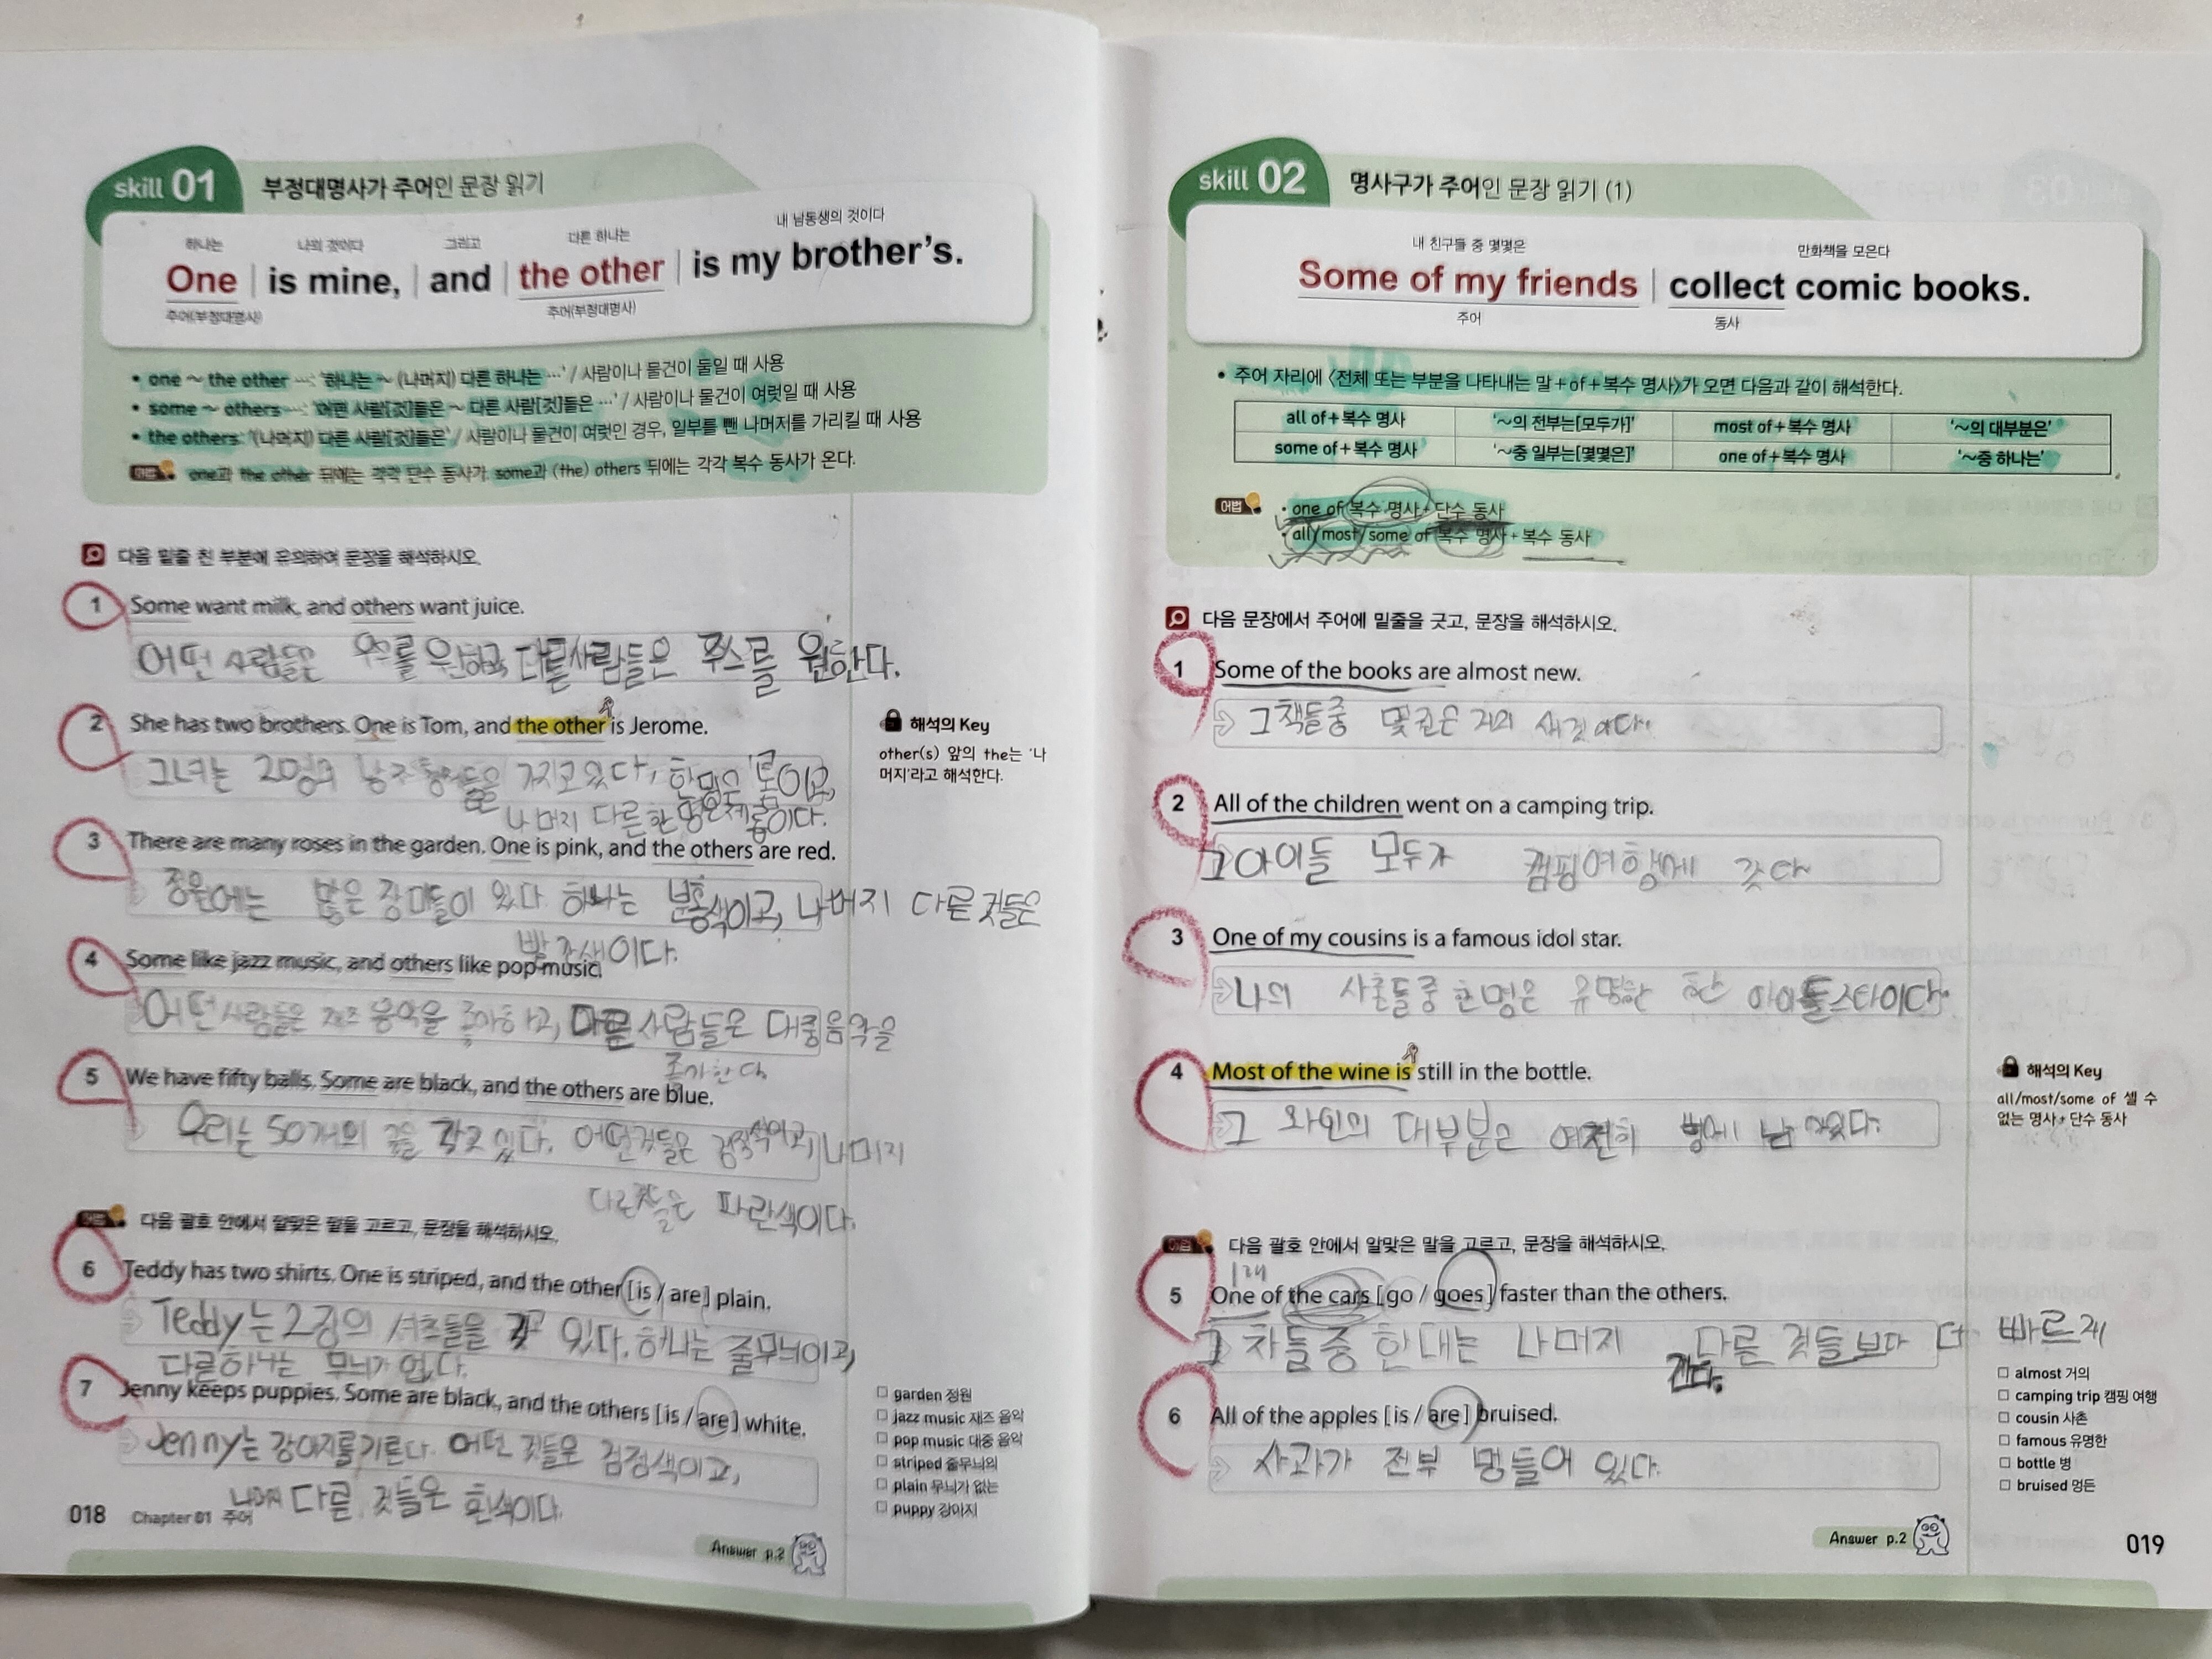 skill 01 부정대명사가 주어인 문장 읽기
하나는 나의 것이다 그리고 다른 하나는 내 남동생의 것이다
One is mine, and the other is my brother's.
주어(부정대명사) 주어(부정대명사)
• one ~ the other …: '하나는 ~ (나머지) 다른 하나는 …' / 사람이나 물건이 둘일 때 사용
• some ~ others …: '어떤 사람[것]들은 ~ 다른 사람[것]들은 …' / 사람이나 물건이 여럿일 때 사용
• the others: '(나머지) 다른 사람[것]들은' / 사람이나 물건이 여럿인 경우, 일부를 뺀 나머지를 가리킬 때 사용
어법 one과 the other 뒤에는 각각 단수 동사가, some과 (the) others 뒤에는 각각 복수 동사가 온다.
다음 밑줄 친 부분에 유의하여 문장을 해석하시오.
1 Some want milk, and others want juice.
어떤 사람들은 우유를 원하고, 다른사람들은 주스를 원한다.
2 She has two brothers. One is Tom, and the other is Jerome.
그녀는 2명의 남자 형제들을 가지고있다, 한명은 톰이고,
나머지 다른한명은제롬이다.
해석의 Key
other(s) 앞의 the는 '나
머지'라고 해석한다.
3 There are many roses in the garden. One is pink, and the others are red.
정원에는 많은 장미들이 있다 하나는 분홍색이고, 나머지 다른것들은
빨간색이다.
4 Some like jazz music, and others like pop music.
어떤사람들은 재즈 음악을 좋아하고, 다른 사람들은 대중음악을
좋아한다.
5 We have fifty balls. Some are black, and the others are blue.
우리는 50개의 공을 갖고 있다. 어떤것들은 검정색이고, 나머지
다른것들은 파란색이다.
어법 다음 괄호 안에서 알맞은 말을 고르고, 문장을 해석하시오.
6 Teddy has two shirts. One is striped, and the other [is / are] plain.
Teddy는 2장의 셔츠들을 갖고 있다. 하나는 줄무늬이고,
다른하나는 무늬가 없다.
7 Jenny keeps puppies. Some are black, and the others [is / are] white.
Jenny는 강아지를기른다. 어떤 것들은 검정색이고,
나머지 다른 것들은 흰색이다.
garden 정원
jazz music 재즈 음악
pop music 대중 음악
striped 줄무늬의
plain 무늬가 없는
puppy 강아지
018 Chapter 01 주어
Answer p.2
skill 02 명사구가 주어인 문장 읽기 (1)
내 친구들 중 몇몇은 만화책을 모은다
Some of my friends collect comic books.
주어 동사
• 주어 자리에 〈전체 또는 부분을 나타내는 말+of+복수 명사〉가 오면 다음과 같이 해석한다.
all of+복수 명사 '~의 전부는[모두가]' most of+복수 명사 '~의 대부분은'
some of+복수 명사 '~중 일부는[몇몇은]' one of+복수 명사 '~중 하나는'
어법 • one of 복수 명사+단수 동사
• all/most/some of 복수 명사+복수 동사
다음 문장에서 주어에 밑줄을 긋고, 문장을 해석하시오.
1 Some of the books are almost new.
그책들중 몇권은 거의 새것이다.
2 All of the children went on a camping trip.
그아이들 모두가 캠핑여행에 갔다
3 One of my cousins is a famous idol star.
나의 사촌들중 한명은 유명한 한 아이돌스타이다.
4 Most of the wine is still in the bottle.
그 와인의 대부분은 여전히 병에 남아있다.
해석의 Key
all/most/some of 셀 수
없는 명사+단수 동사
어법 다음 괄호 안에서 알맞은 말을 고르고, 문장을 해석하시오.
1대
5 One of the cars [go / goes] faster than the others.
그 차들중 한대는 나머지 다른 것들보다 더 빠르게
간다.
6 All of the apples [is / are] bruised.
사과가 전부 멍들어 있다.
almost 거의
camping trip 캠핑 여행
cousin 사촌
famous 유명한
bottle 병
bruised 멍든
Answer p.2
019